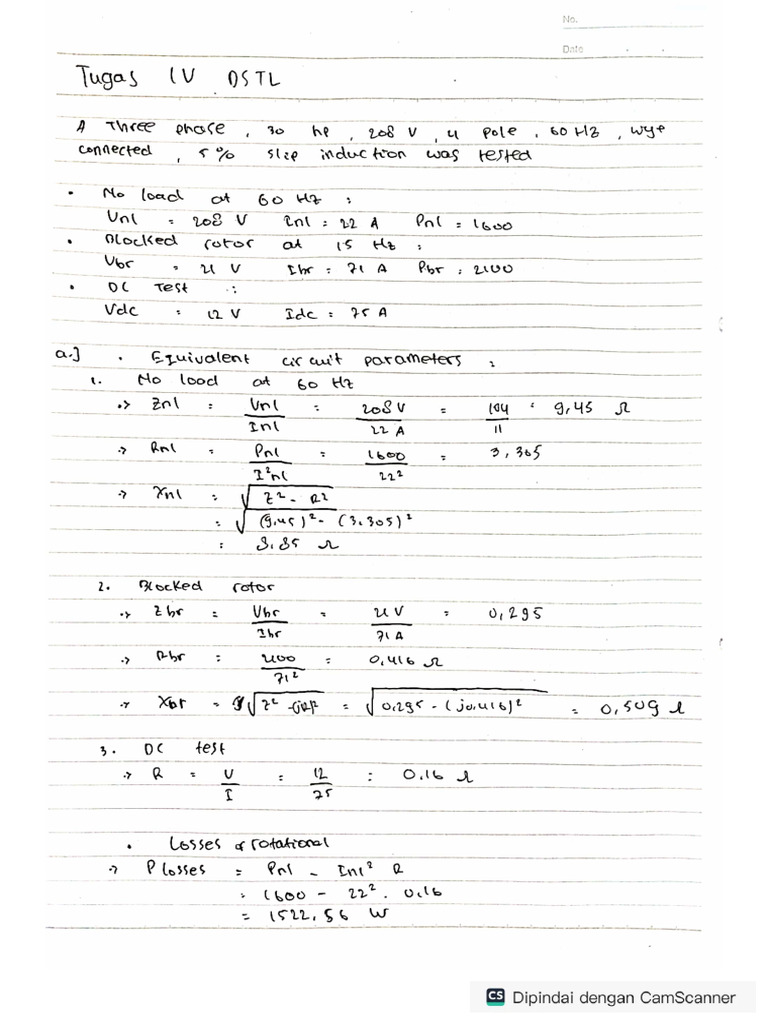 No.
Date
Tugas IV DSTL
A Three phase, 30 hp, 208 V, 4 pole, 60 Hz, wye
connected, 5% slip induction was tested
• No load at 60 Hz :
Vnl = 208 V Inl = 22 A Pnl = 1600
• Blocked rotor at 15 Hz :
Vbr = 21 V Ibr = 71 A Pbr : 2100
• DC Test :
Vdc = 12 V Idc = 75 A
a.] • Equivalent circuit parameters :
1. No load at 60 Hz
•> Znl = Vnl/Inl = 208 V/22 A = 104/11 = 9,45 Ω
-> Rnl = Pnl/I²nl = 1600/22² = 3,305
-> Xnl = √(Z² - R²)
= √((9,45)² - (3,305)²)
= 8,85 Ω
2. Blocked rotor
•> Zbr = Vbr/Ibr = 21 V/71 A = 0,295
-> Rbr = 2100/71² = 0,416 Ω
-> Xbr = √(Z² - (jR)²) = √(0,295 - (j0,416)²) = 0,509 Ω
3. DC test
-> R = V/I = 12/75 = 0.16 Ω
• Losses of rotational
-> P losses = Pnl - Inl² R
= 1600 - 22² . 0,16
= 1522,56 W
CS Dipindai dengan CamScanner